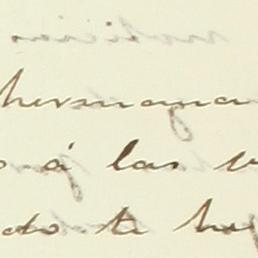 hermana
á las
do te ha